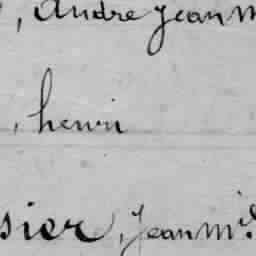 , André Jean M
, henri
sier, Jean M